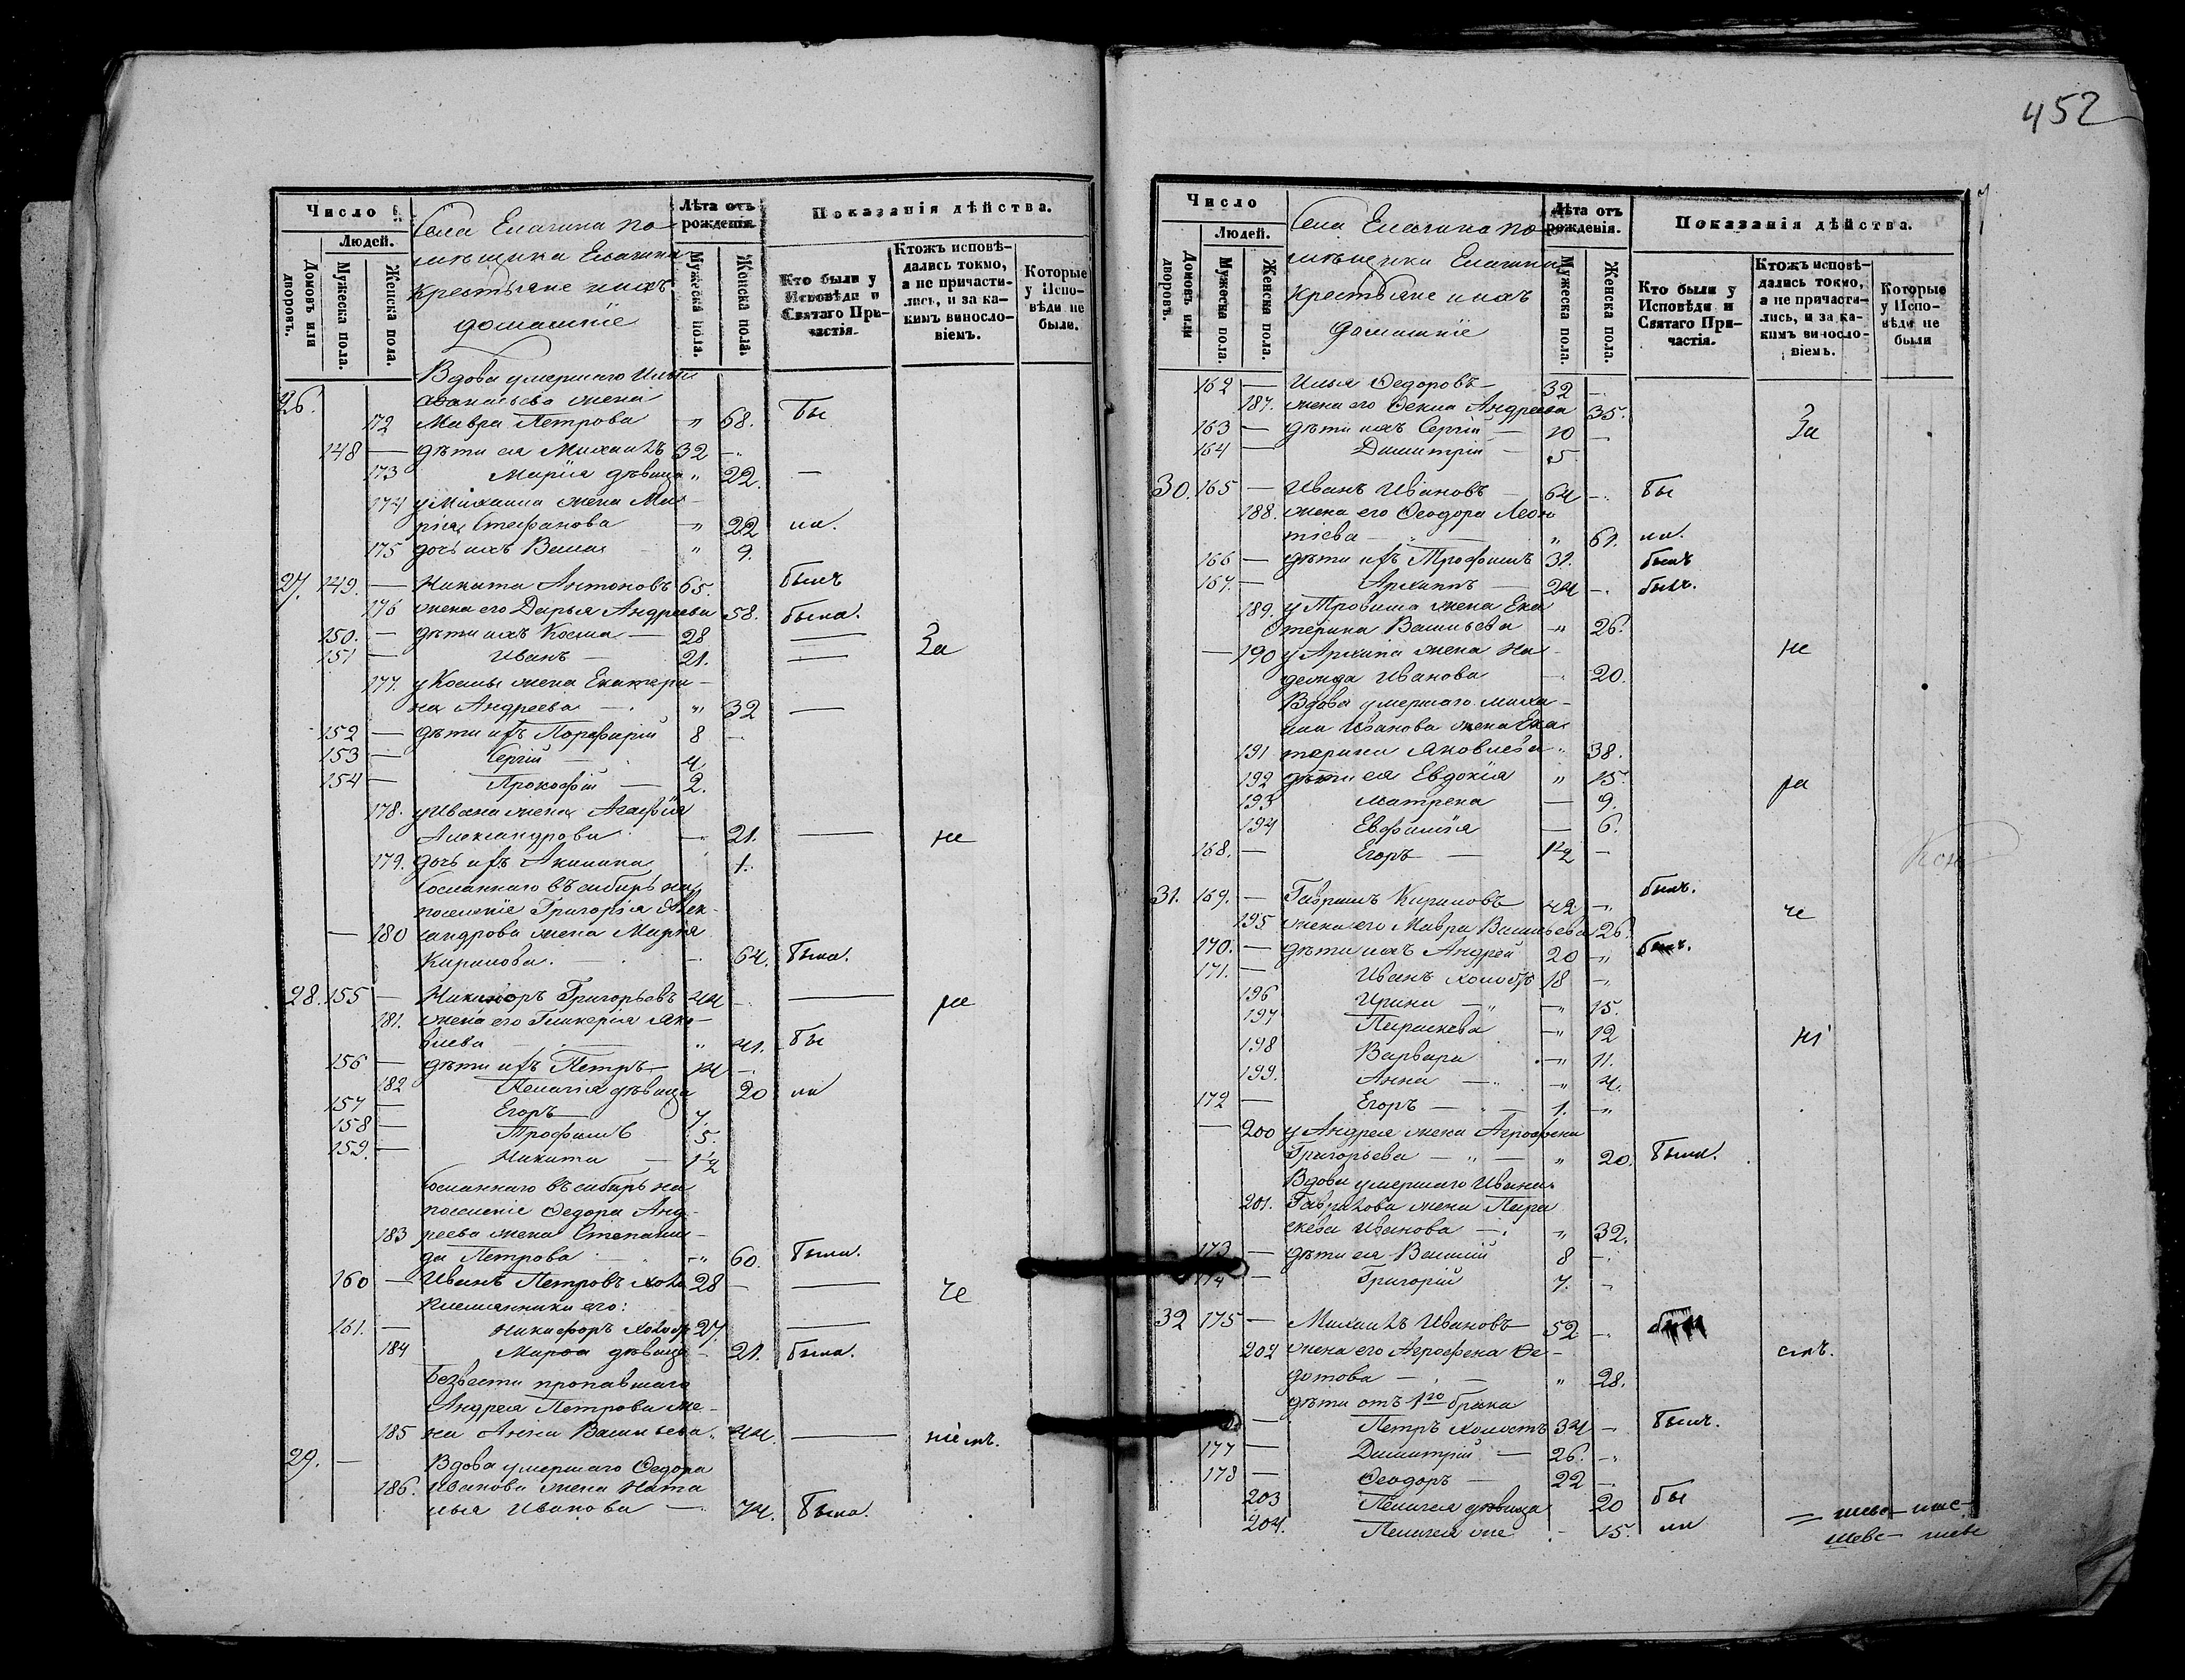 Число
Людей.
Домовъ или дворовъ.
Мужеска пола.
Женска пола.
Села Елагина по-
мѣщика Елагина
крестьяне и ихъ
домашніе
Лѣта отъ рожденія.
Мужеска пола.
Женска пола.
Показанія дѣйства.
Кто были у Исповѣди и Святаго Причастія.
Ктожъ исповѣ-
дались токмо,
а не причасти-
лись, и за ка-
кимъ винослo-
віемъ.
Которые
у Испо-
вѣди не
были.
Вдова умершаго
26. жена
172 Мавра Петрова " 68. Бы
148 — дѣти ея Михаилъ 32 —
173 Марія дѣвица " 22. —
174 у Михаила жена Ма-
рія Стефанова " 22 ла.
175 дочь ихъ " 9.
27. 149. — Никита Антоновъ 65. былъ
176 жена его Дарья Андреева 58. была.
150. — дѣти ихъ Косма — 28 — За
151 — Иванъ — 21. —
177. у Космы жена Екатери-
на Андреева — " 32 —
152 — дѣти ихъ Порфирій 8 —
153 — Сергій — 4
154 — Прокофій — 2.
178. у Ивана жена Агафія
Александрова — 21. — не
179. дочь ихъ Акилина 1.
Сосланнаго въ сибирь на
поселеніе Григорія Алек-
— 180 сандрова жена Марія
Кирилова. — 64. была.
28. 155 — Никифоръ Григорьевъ 44 — — ра
181. жена его Гликерія Яко-
влева — " 41. бы
156 — дѣти ихъ Петръ — 14 —
182 Пелагія дѣвица 20 ла
157 — Егоръ — 7.
158 — Трофимъ 5.
159. — Никита — 1½
Сосланнаго въ сибирь на
поселеніе Ѳедора Анд-
183 реева жена Степани-
да Петрова — " 60. была.
160 — Иванъ Петровъ холо 28 — — че
племянники его:
161. — Никифоръ холос 27. —
184 Марѳа дѣвица — 21. была.
Безвести пропавшаго
Андрея Петрова же-
185 на Анна Васильева " 44. —
29. — Вдова умершаго Ѳедора
186. Иванова жена Ната
лья Иванова — 74. была.
452
Число
Людей.
Домовъ или дворовъ.
Мужеска пола.
Женска пола.
Села Елагина по-
мѣщика Елагина
крестьяне и ихъ
домашніе
Лѣта отъ рожденія.
Мужеска пола.
Женска пола.
Показанія дѣйства.
Кто были у Исповѣди и Святаго Причастія.
Ктожъ исповѣ-
дались токмо,
а не причасти-
лись, и за ка-
кимъ винослo-
віемъ.
Которые
у Испо-
вѣди не
были
162 — Илья Ѳедоровъ — 32 —
187. жена его Ѳекла Андреева 35.
163 — дѣти ихъ Сергій — 10 — За
164 — Димитрій — 5.
30. 165 — Иванъ Ивановъ — 64 — Бы
188. жена его Ѳеодора Леон
тіева — " 61. ла.
166 — дѣти ихъ Трофимъ 31. былъ
167. — Архипъ — 24 — былъ.
189. у Трофима жена Ека
терина Васильева — " 26.
— 190 у Архипа жена На- не
дежда Иванова — 20.
Вдова умершаго Миха-
ила Иванова жена Ека
191 терина Яковлева " 38.
192 дѣти ея Евдокія " 15. ра
193 Матрена — 9.
194 Евфимія — 6.
168. — Егоръ — 1½ —
31. 169. — Гавріилъ Кириловъ 42 — былъ. че
195 жена его Мавра Васильева 26.
170. — дѣти ихъ Андрей 20 — былъ.
171. — Иванъ холостъ 18 —
196 Ирина — — 15.
197 Параскева — 12 ні
198 Варвара — 11.
199. Анна — " 4.
172 — Егоръ — " — 1. —
— 200 у Андрея жена Агрофена
Григорьева — " — " 20. была.
Вдова умершаго Ивана
201. Гаврилова жена Пара
скева Иванова — " 32.
173 — дѣти ея Василій 8 —
174 — Григорій 7. —
32 175 — Михаилъ Ивановъ — 52 —
202 жена его Агрофена Ѳе- емъ.
дотова — " 28.
дѣти отъ 1го брака
— Петръ холостъ 34 — былъ.
177 — Димитрій — 26. —
178 — Ѳеодоръ — 22 —
203 Пелагея дѣвица 20 бы
204. Пелагея же — 15. ла